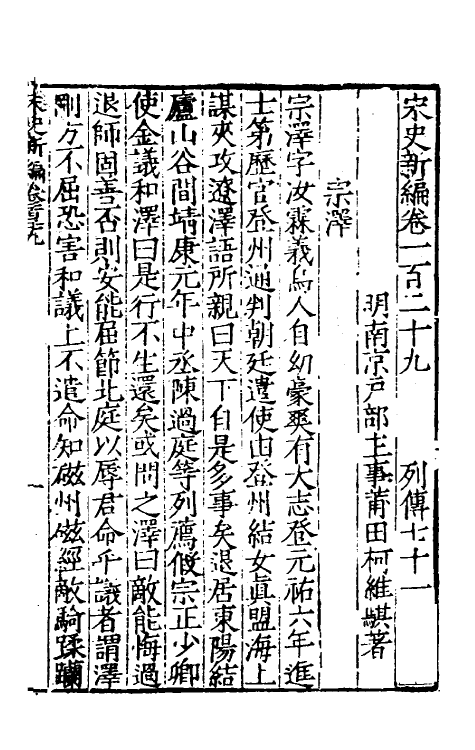 宋史新編卷一百二十九 列傳七十一
明南京戶部主事莆田柯維騏著
宗澤
宗澤字汝霖義烏人自幼豪爽有大志登元祐六年進
士第歷官登州通判朝廷遣使由登州結女真盟海上
謀夾攻遼澤語所親曰天下自是多事矣退居東陽結
廬山谷間靖康元年中丞陳過庭等列薦假宗正少卿
使金議和澤曰是行不生還矣或問之澤曰敵能悔過
退師固善否則安能屈節北庭以辱君命乎議者謂澤
剛方不屈恐害和議上不遣命知磁州磁經敵騎蹂躪
宋史新編卷一百二十九
一